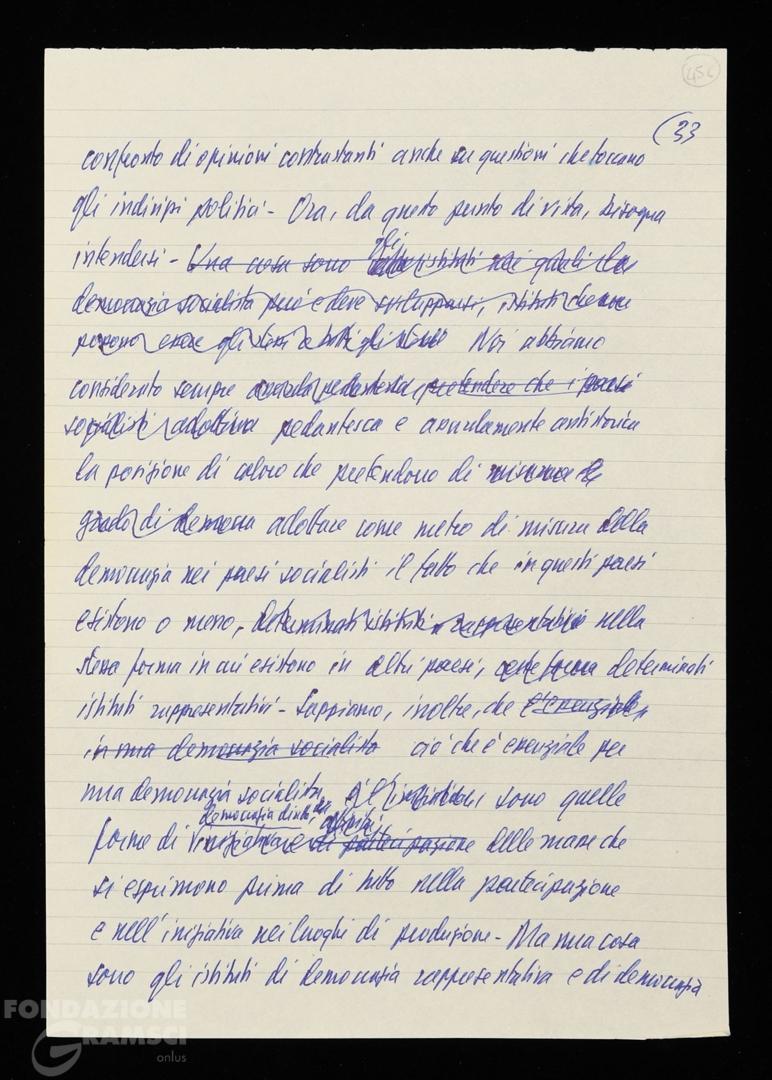 456
(33
confronto di opinioni contrastanti anche su questioni che toccano
gli indirizzi politici - Ora, da questo punto di vista, bisogna
intendersi - Una cosa sono gli istituti nei quali la
democrazia socialista può e deve svilupparsi, istituti che non
possono essere gli stessi Noi abbiamo
considerato sempre pedantesca, pretendere che i paesi
socialisti adottino pedantesca e astrattamente antistorica
la posizione di coloro che pretendono di misurare il
grado di democra adottare come metro di misura della
democrazia nei paesi socialisti il fatto che in questi paesi
esistono o meno, determinati istituti rappresentativi nella
stessa forma in cui esistono in altri paesi, determinati
istituti rappresentativi - Sappiamo, inoltre, che è essenziale,
in una democrazia socialista ciò che è essenziale per
una democrazia socialista, sono quelle
democrazia diretta,
forme di iniziativa e di partecipazione delle masse che
si esprimono prima di tutto nella partecipazione
e nell'iniziativa nei luoghi di produzione - Ma una cosa
sono gli istituti di democrazia rappresentativa e di democrazia
FONDAZIONE
GRAMSCI
onlus